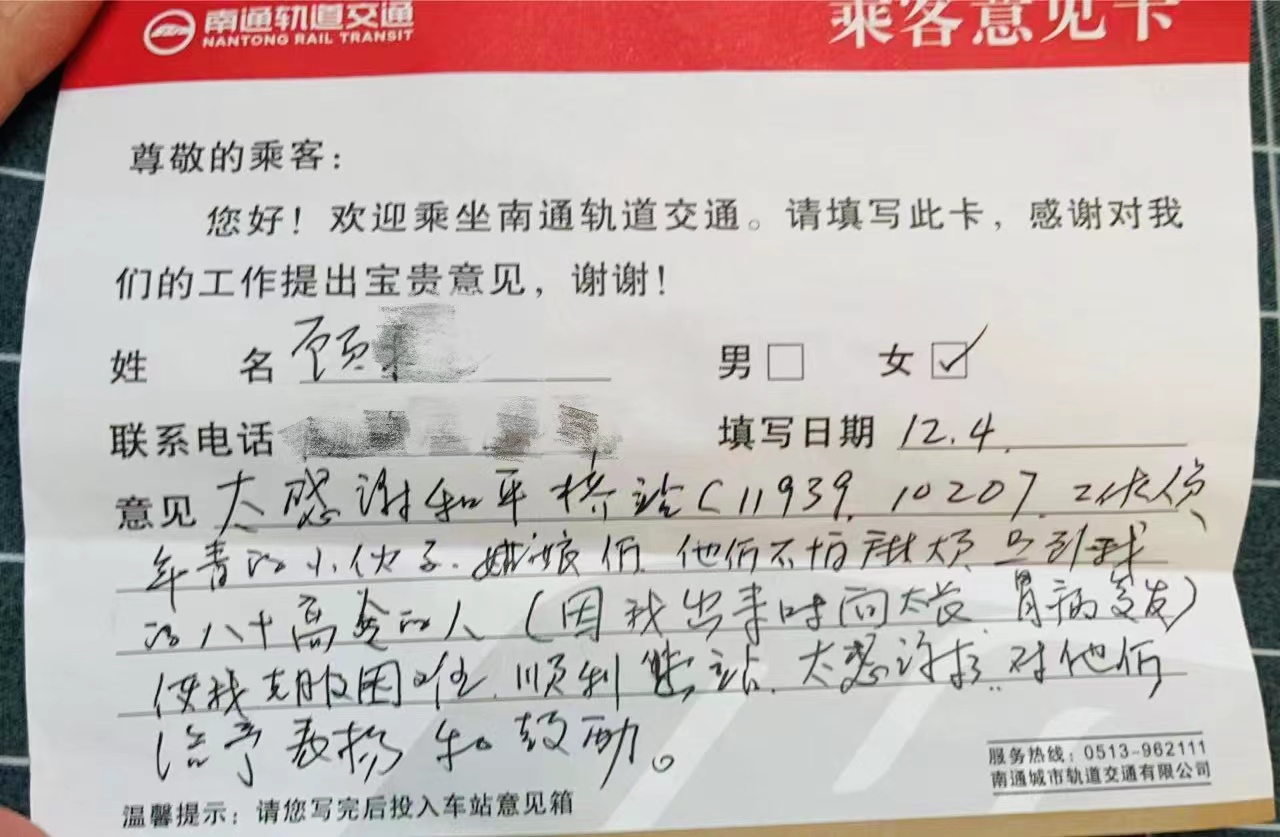 南通轨道交通
NANTONG RAIL TRANSIT
乘客意见卡
尊敬的乘客：
您好！欢迎乘坐南通轨道交通。请填写此卡，感谢对我
们的工作提出宝贵意见，谢谢！
姓 名 顾
男□ 女☑
联系电话
填写日期 12.4
意见 太感谢和平桥站(11939.10207.工作人员
年青的小伙子.姑娘们.他们不怕麻烦
的八十高龄的人(因我出来时间太长 胃病复发)
使我克服困难.顺利 站.太感谢 .对他们
给予表扬和鼓励。
服务热线：0513-962111
南通城市轨道交通有限公司
温馨提示：请您写完后投入车站意见箱